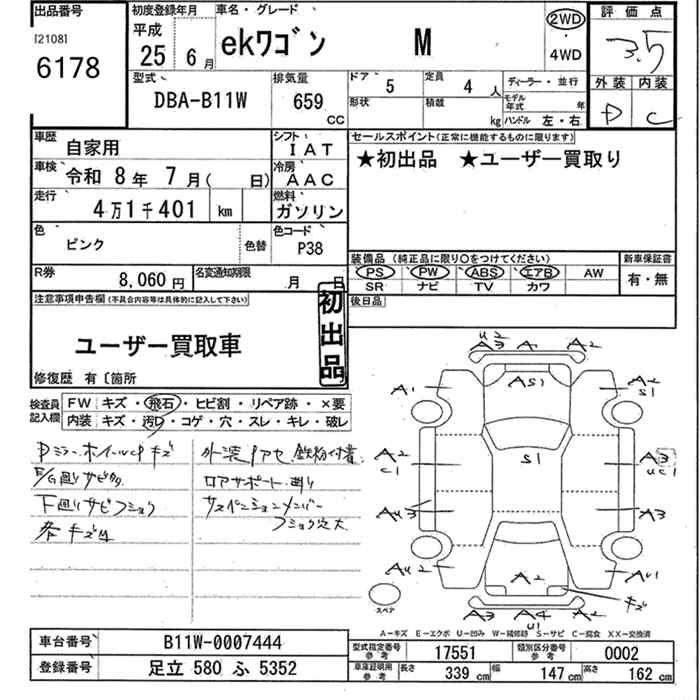 出品番号
[2108]
6178
初度登録年月
平成
25 6月
車名・グレード
ekワゴン M
2WD
・
4WD
評価点
3.5
外装 内装
D C
型式
DBA-B11W
排気量
659
CC
ドア 5
定員 4 人
形状
積載 kg
ディーラー・並行
モデル年式 年
ハンドル 左・右
車歴 自家用
シフト IAT
車検 令和 8年 7月( 日)
冷房 AAC
走行 4万1千401 km
燃料 ガソリン
色 ピンク
色替
色コード P38
R券 8,060円
名変通知期限 月 日
セールスポイント(正常に機能するものに限ります)
★初出品 ★ユーザー買取り
装備品 (純正品に限り○をつけてください)
PS ・ PW ・ ABS ・ エアB ・ AW
SR ・ ナビ ・ TV ・ カワ ・
新車保証書
有・無
後日品
注意事項申告欄 (不具合内容等は具体的に記入して下さい)
初出品
ユーザー買取車
修復歴 有〔箇所
検査員記入欄
FW キズ・飛石・ヒビ割・リペア跡・×要
内装 キズ・汚レ・コゲ・穴・スレ・キレ・破レ
Dミラー ホイールCP キズ
下廻りサビフショク
各キズ凹
外装アセ 鉄粉付着
サスペンションメンバー
フショク大
U2
A3 A A2
A1
AS1
A2
S1
A2
C1
S1
A3
UC1
AU3
A3
AU2
A2
AU1
キズ
A3 A4 A2
U1
スペア
A-キズ E-エクボ U-凹み W-補修跡 S-サビ C-腐食 XX-交換済
車台番号 B11W-0007444
登録番号 足立 580 ふ 5352
型式指定番号 参考 17551
類別区分番号 参考 0002
車庫証明用 参考 長さ 339 cm 幅 147 cm 高さ 162 cm